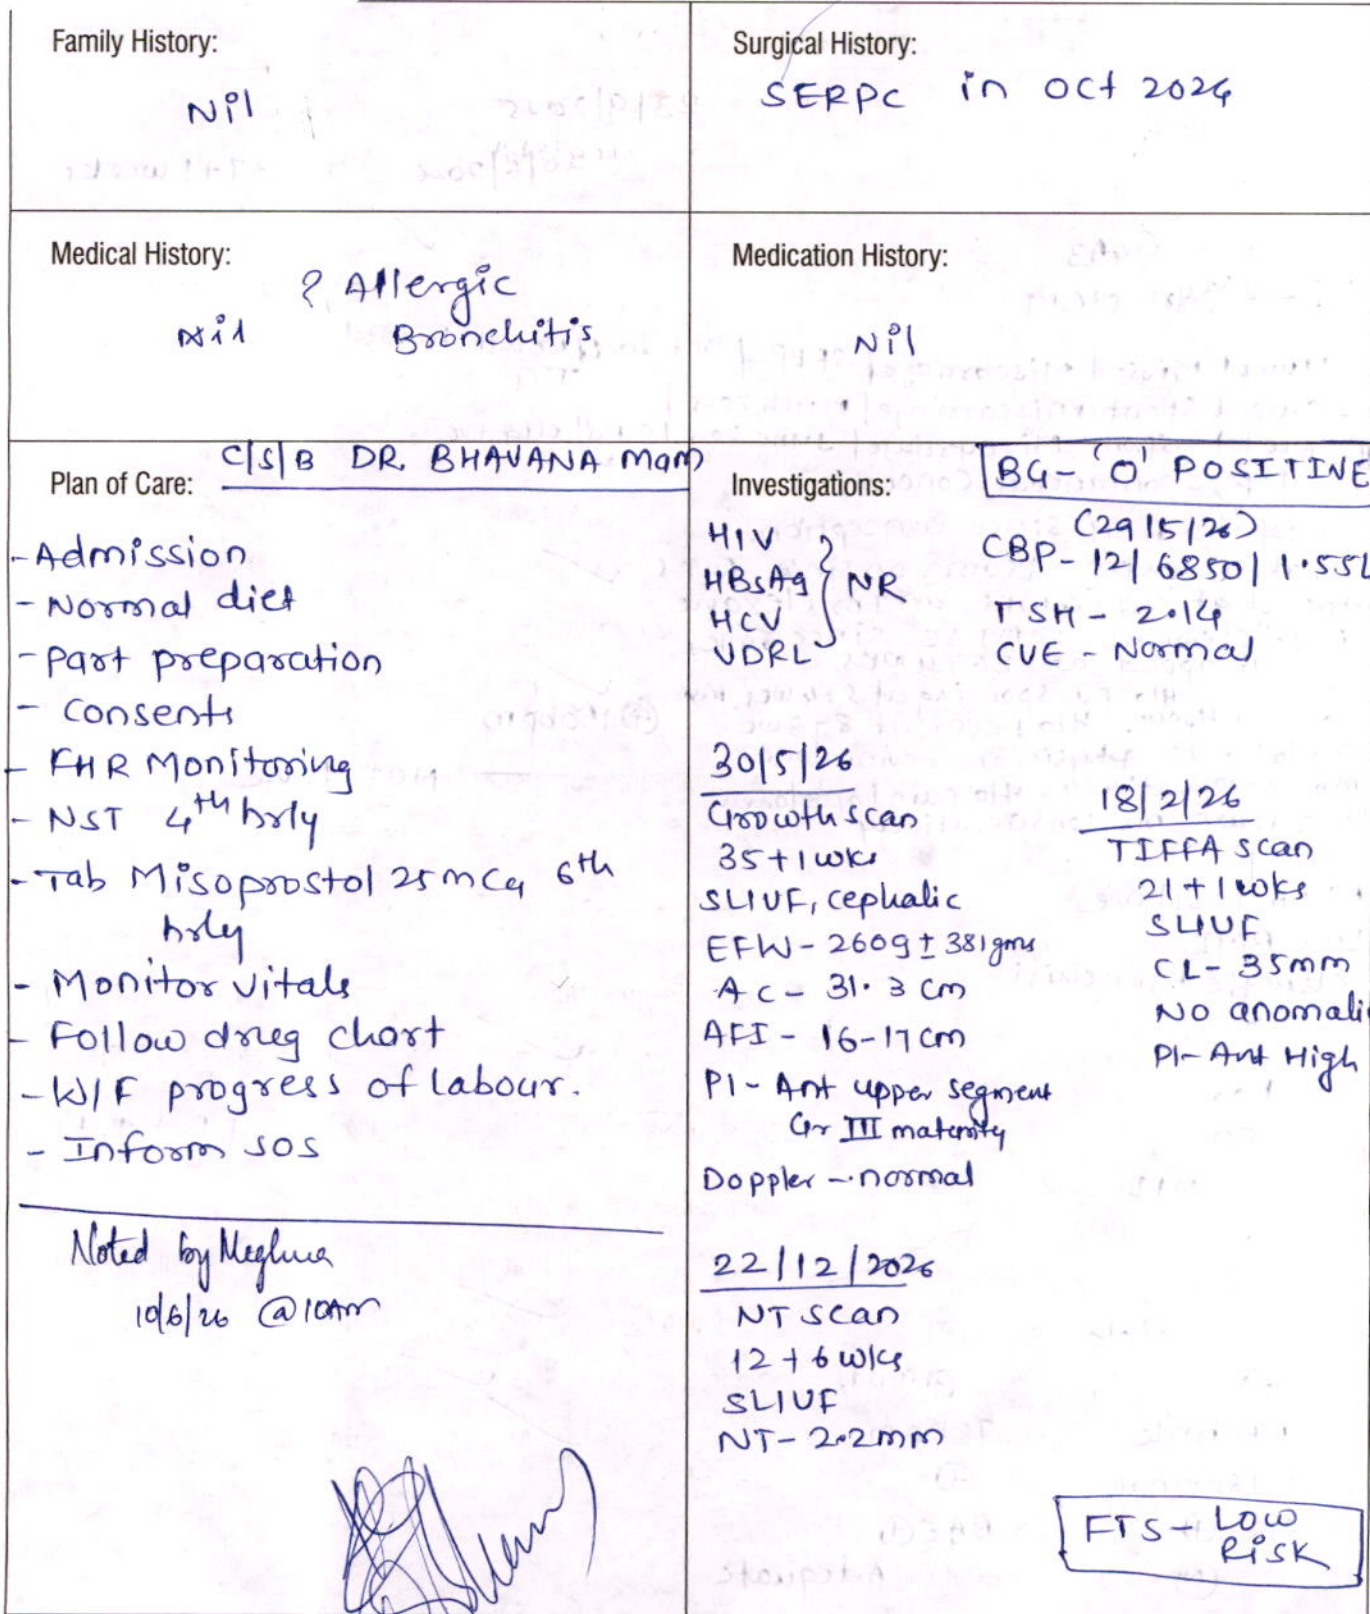 Family History:
Nil
Surgical History:
SERPC in Oct 2024
Medical History:
? Allergic
Nil Bronchitis
Medication History:
Nil
C/S/B DR. BHAVANA Mam
Plan of Care:
- Admission
- Normal diet
- Part preparation
- Consents
- FHR Monitoring
- NST 4th hrly
- Tab Misoprostol 25mcg 6th
hrly
- Monitor vitals
- Follow drug chart
- W/F progress of labour.
- Inform SOS
Noted by Meghna
10/6/26 @10Am
Investigations:
BG- 'O' POSITIVE
HIV
HBsAg
HCV
VDRL
NR
(29/5/26)
CBP- 12/6850/1.55L
TSH - 2.14
CUE - Normal
30/5/26
Growth scan
35+1 wks
SLIUF, cephalic
EFW- 2609 ± 381gms
AC - 31.3 cm
AFI - 16-17cm
Pl - Ant upper segment
Gr III maturity
Doppler - normal
18/2/26
TIFFA scan
21+1 wks
SLIUF
CL- 35mm
No anomali
Pl- Ant High
22/12/2026
NT scan
12+6 wks
SLIUF
NT- 2.2mm
FTS - Low
Risk